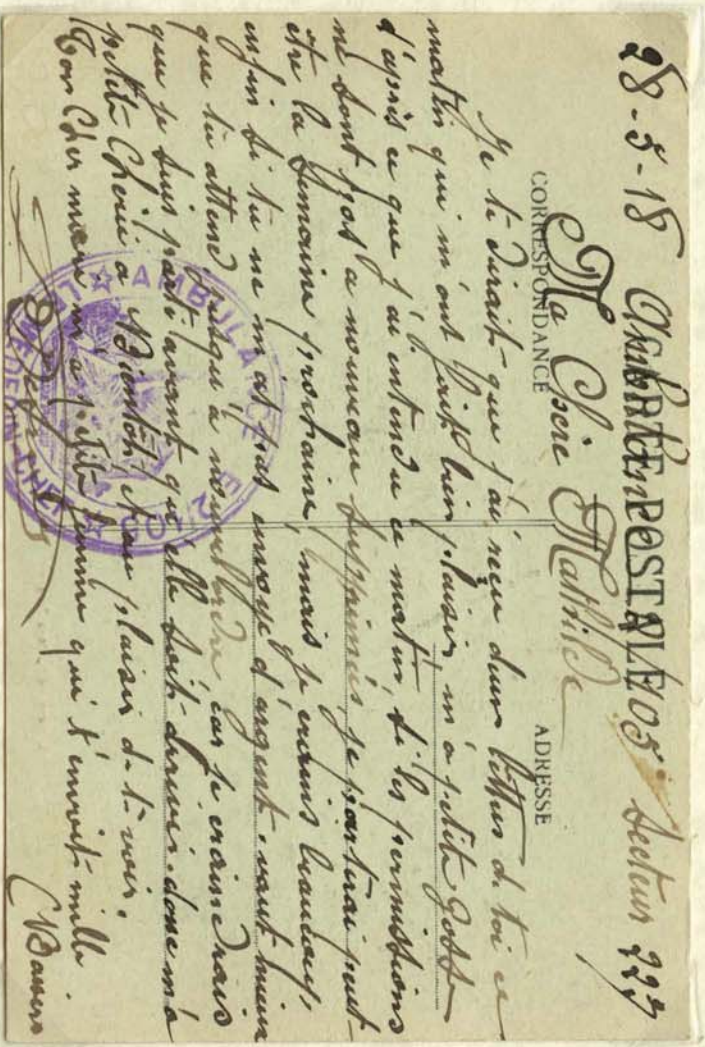 28-5-18 Ambulance 2/105 Secteur 223
CARTE POSTALE
CORRESPONDANCE
ADRESSE
Ma Chère Mathilde
Je te dirait que j'ai reçu deux lettres de toi ce
matin qui m'ont fait bien plaisir m'a petite Gosse
d'après ce que j'ai entendu ce matin, si les permissions
ne sont pas a nouveau supprimés, je partirai peut-
etre la semaine prochaine, mais je crains beaucoup,
enfin si tu ne m'as pas envoyé d'argent, vaut mieux
que tu attend jusqu'à nouvel ordre car je craindrais
que je suis parti avant qu'elle soit arrivée. donc m'a
petite Chérie a Bientôt, d'au plaisir de te voir.
Ton Cher mari m'a petite femme qui t'envoit mille
Baisers
AMBULANCE 2/105
LE MÉDECIN-CHEF